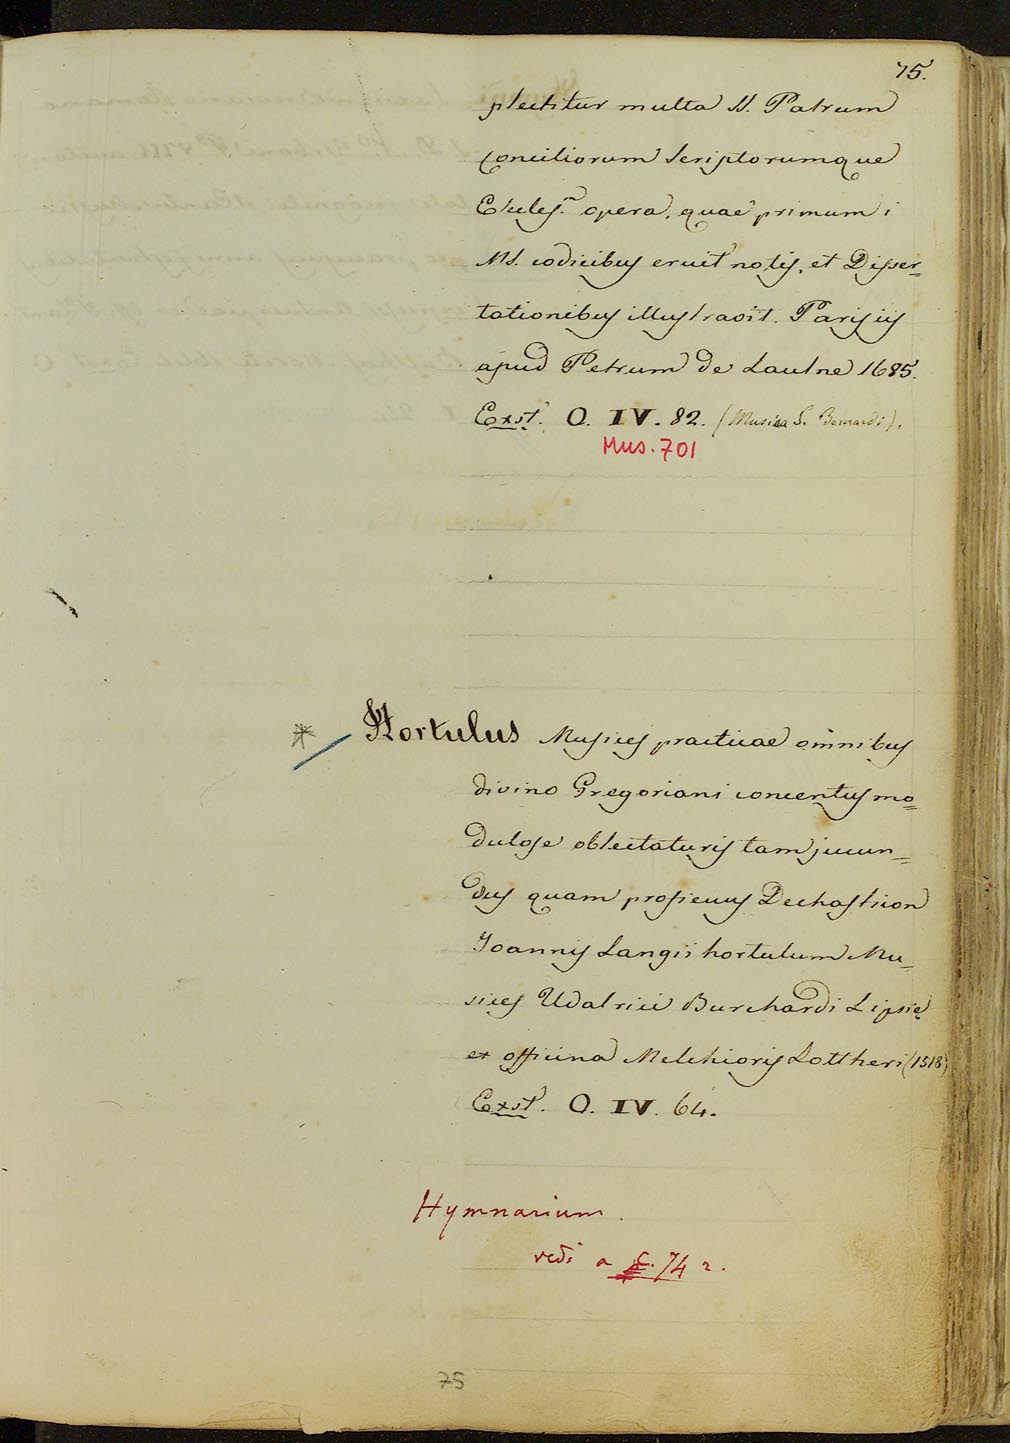 75.
plectitur multa SS. Patrum
Conciliorum Scriptorumque
Eccles.ᵃ opera, quae primum i
MS. codicibus eruit notis, et Disser=
tationibus illustravit. Parisiis
apud Petrum de Laulne 1685.
Exst. O. IV. 82. (Musica S. Bernardi).
Mus. 701
* Hortulus Musices practicae omnibus
divino Gregoriani concentus mo=
dulose oblectaturis tam jucun=
dus quam proficuus Dechastion
Joannis Langii hortulum Mu=
sices Udalrici Burchardi Lipsie
ex officina Melchioris Lottheri (1518)
Exst. O. IV. 64.
Hymnarium.
vedi a c. 74 r.
75